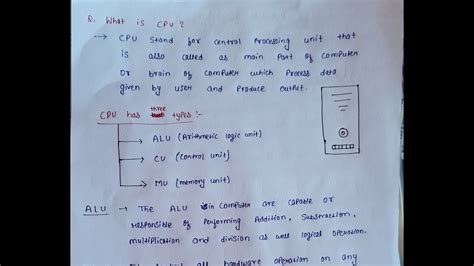 Q. What is CPU?
→ CPU stand for central Processing unit that
is also called as main Part of computer
or brain of computer which Process data
given by user and Produce output.
CPU has three types :-
→ ALU (Arithmetic logic unit)
→ CU (control unit)
→ MU (memory unit)
ALU → The ALU in computer are capable or
responsible of Performing Addition, Substraction,
multiplication and division as well logical operation.
all hardware operation on any